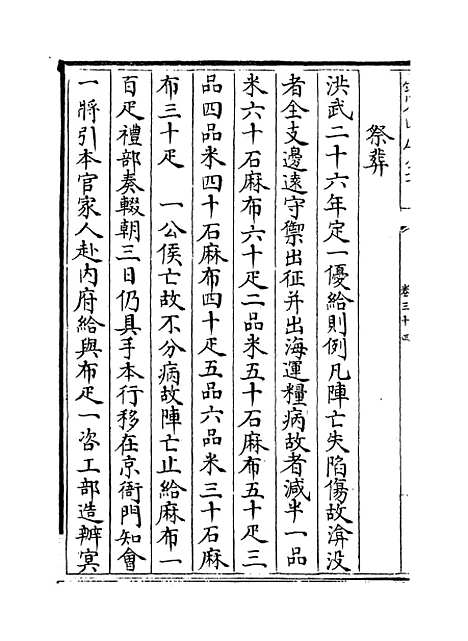 卷三十四
祭葬
洪武二十六年定一優給則例凡陣亡失陷傷故渰没
者全支邊遠守禦出征并出海運糧病故者減半一品
米六十石麻布六十疋二品米五十石麻布五十疋三
品四品米四十石麻布四十疋五品六品米三十石麻
布三十疋 一公侯亡故不分病故陣亡止給麻布一
百疋禮部奏輟朝三日仍具手本行移在京衙門知會
一將引本官家人赴内府給與布疋一咨工部造辦冥